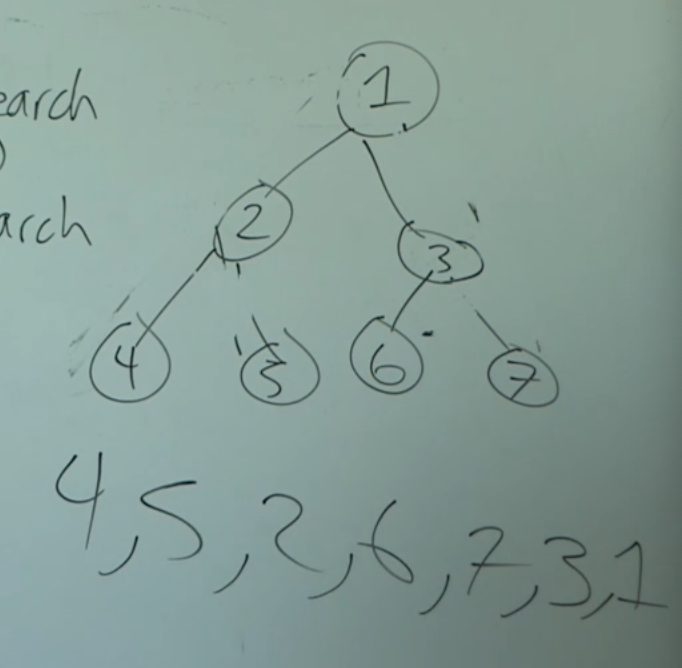 earch
1
)
arch
2
3
4 5 6 7
4,5,2,6,7,3,1